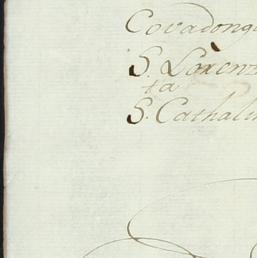 Covadong
S. Lorenz
ta
S. Cathali